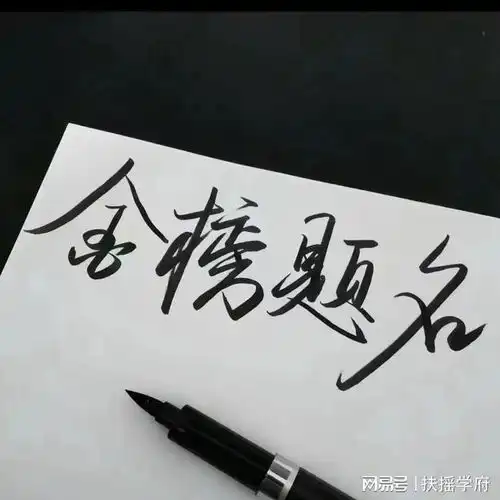 金榜题名
网易号 | 扶摇学府